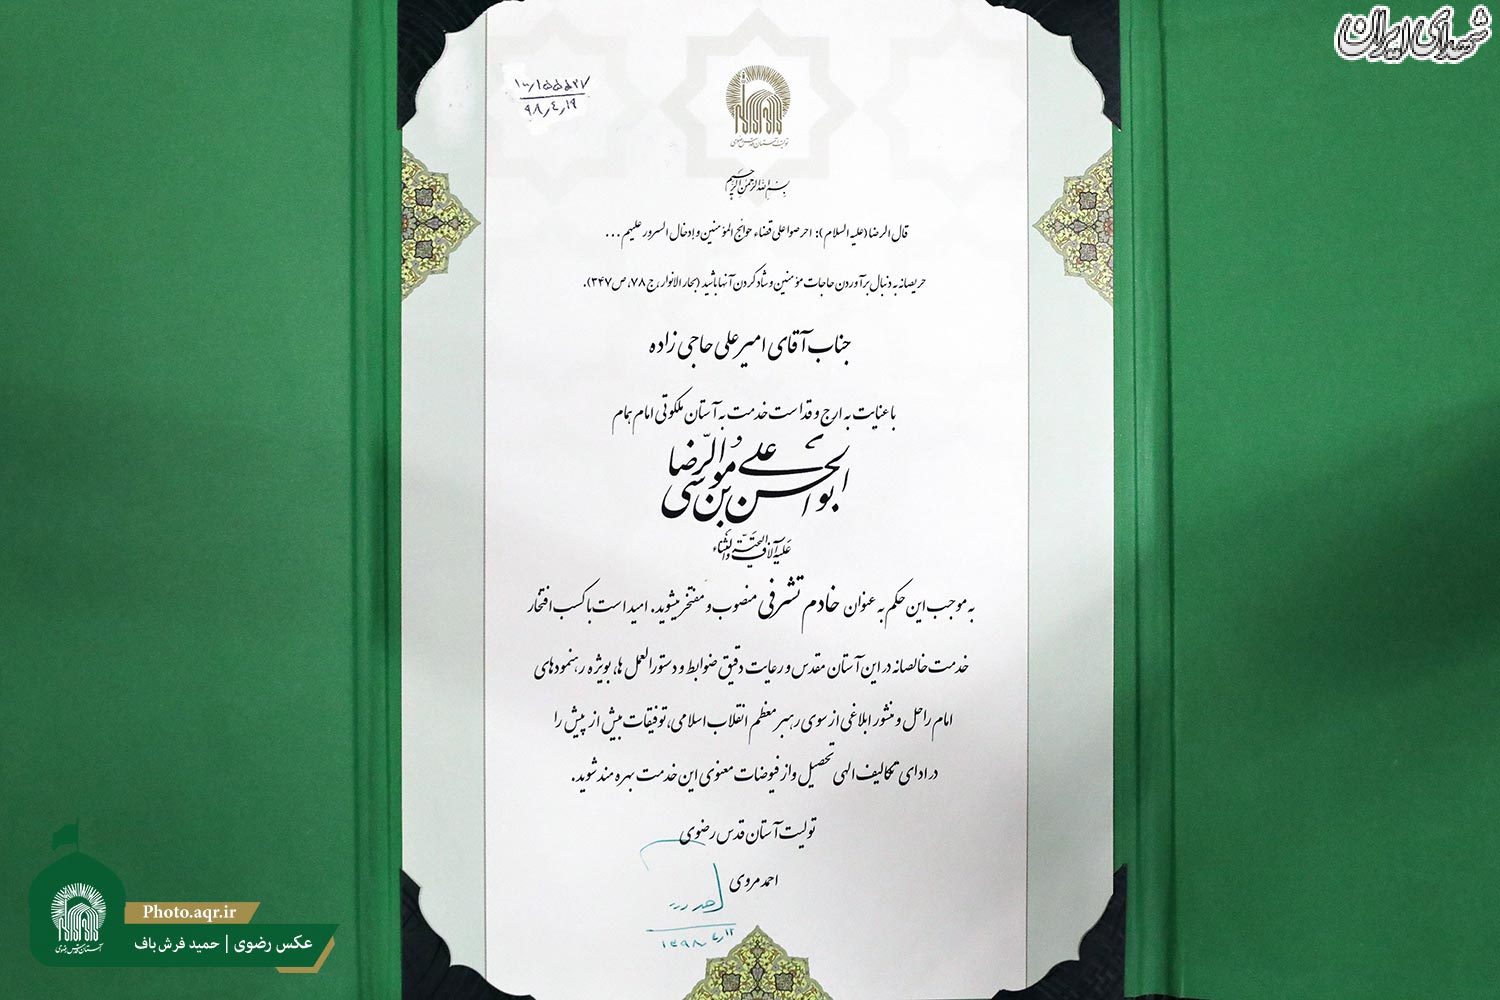 شهدای ایران
۱۰/۱۵۵۵۲۷
۹۸,۴,۱۹
تولیت آستان قدس رضوی
بسم الله الرحمن الرحیم
قال الرضا (علیه السلام): احرصوا علی قضاء حوائج المؤمنین و إدخال السرور علیهم ...
حریصانه به دنبال برآوردن حاجات مؤمنین و شاد کردن آنها باشید (بحار الانوار، ج ۷۸، ص ۳۴۷).
جناب آقای امیرعلی حاجی زاده
با عنایت به ارج و قداست خدمت به آستان ملکوتی امام همام
ابوالحسن علی بن موسی الرضا
علیه آلاف التحیة والثناء
به موجب این حکم به عنوان خادم تشرفی منصوب و مفتخر میشوید. امید است با کسب افتخار
خدمت خالصانه در این آستان مقدس و رعایت دقیق ضوابط و دستورالعمل ها، بویژه رهنمودهای
امام راحل و منشور ابلاغی از سوی رهبر معظم انقلاب اسلامی، توفیقات بیش از پیش را
در ادای تکالیف الهی تحصیل و از فیوضات معنوی این خدمت بهره مند شوید.
تولیت آستان قدس رضوی
احمد مروی
۱۳۹۸,۴,۱۲
Photo.aqr.ir
عکس رضوی | حمید فرش باف
آستان قدس رضوی